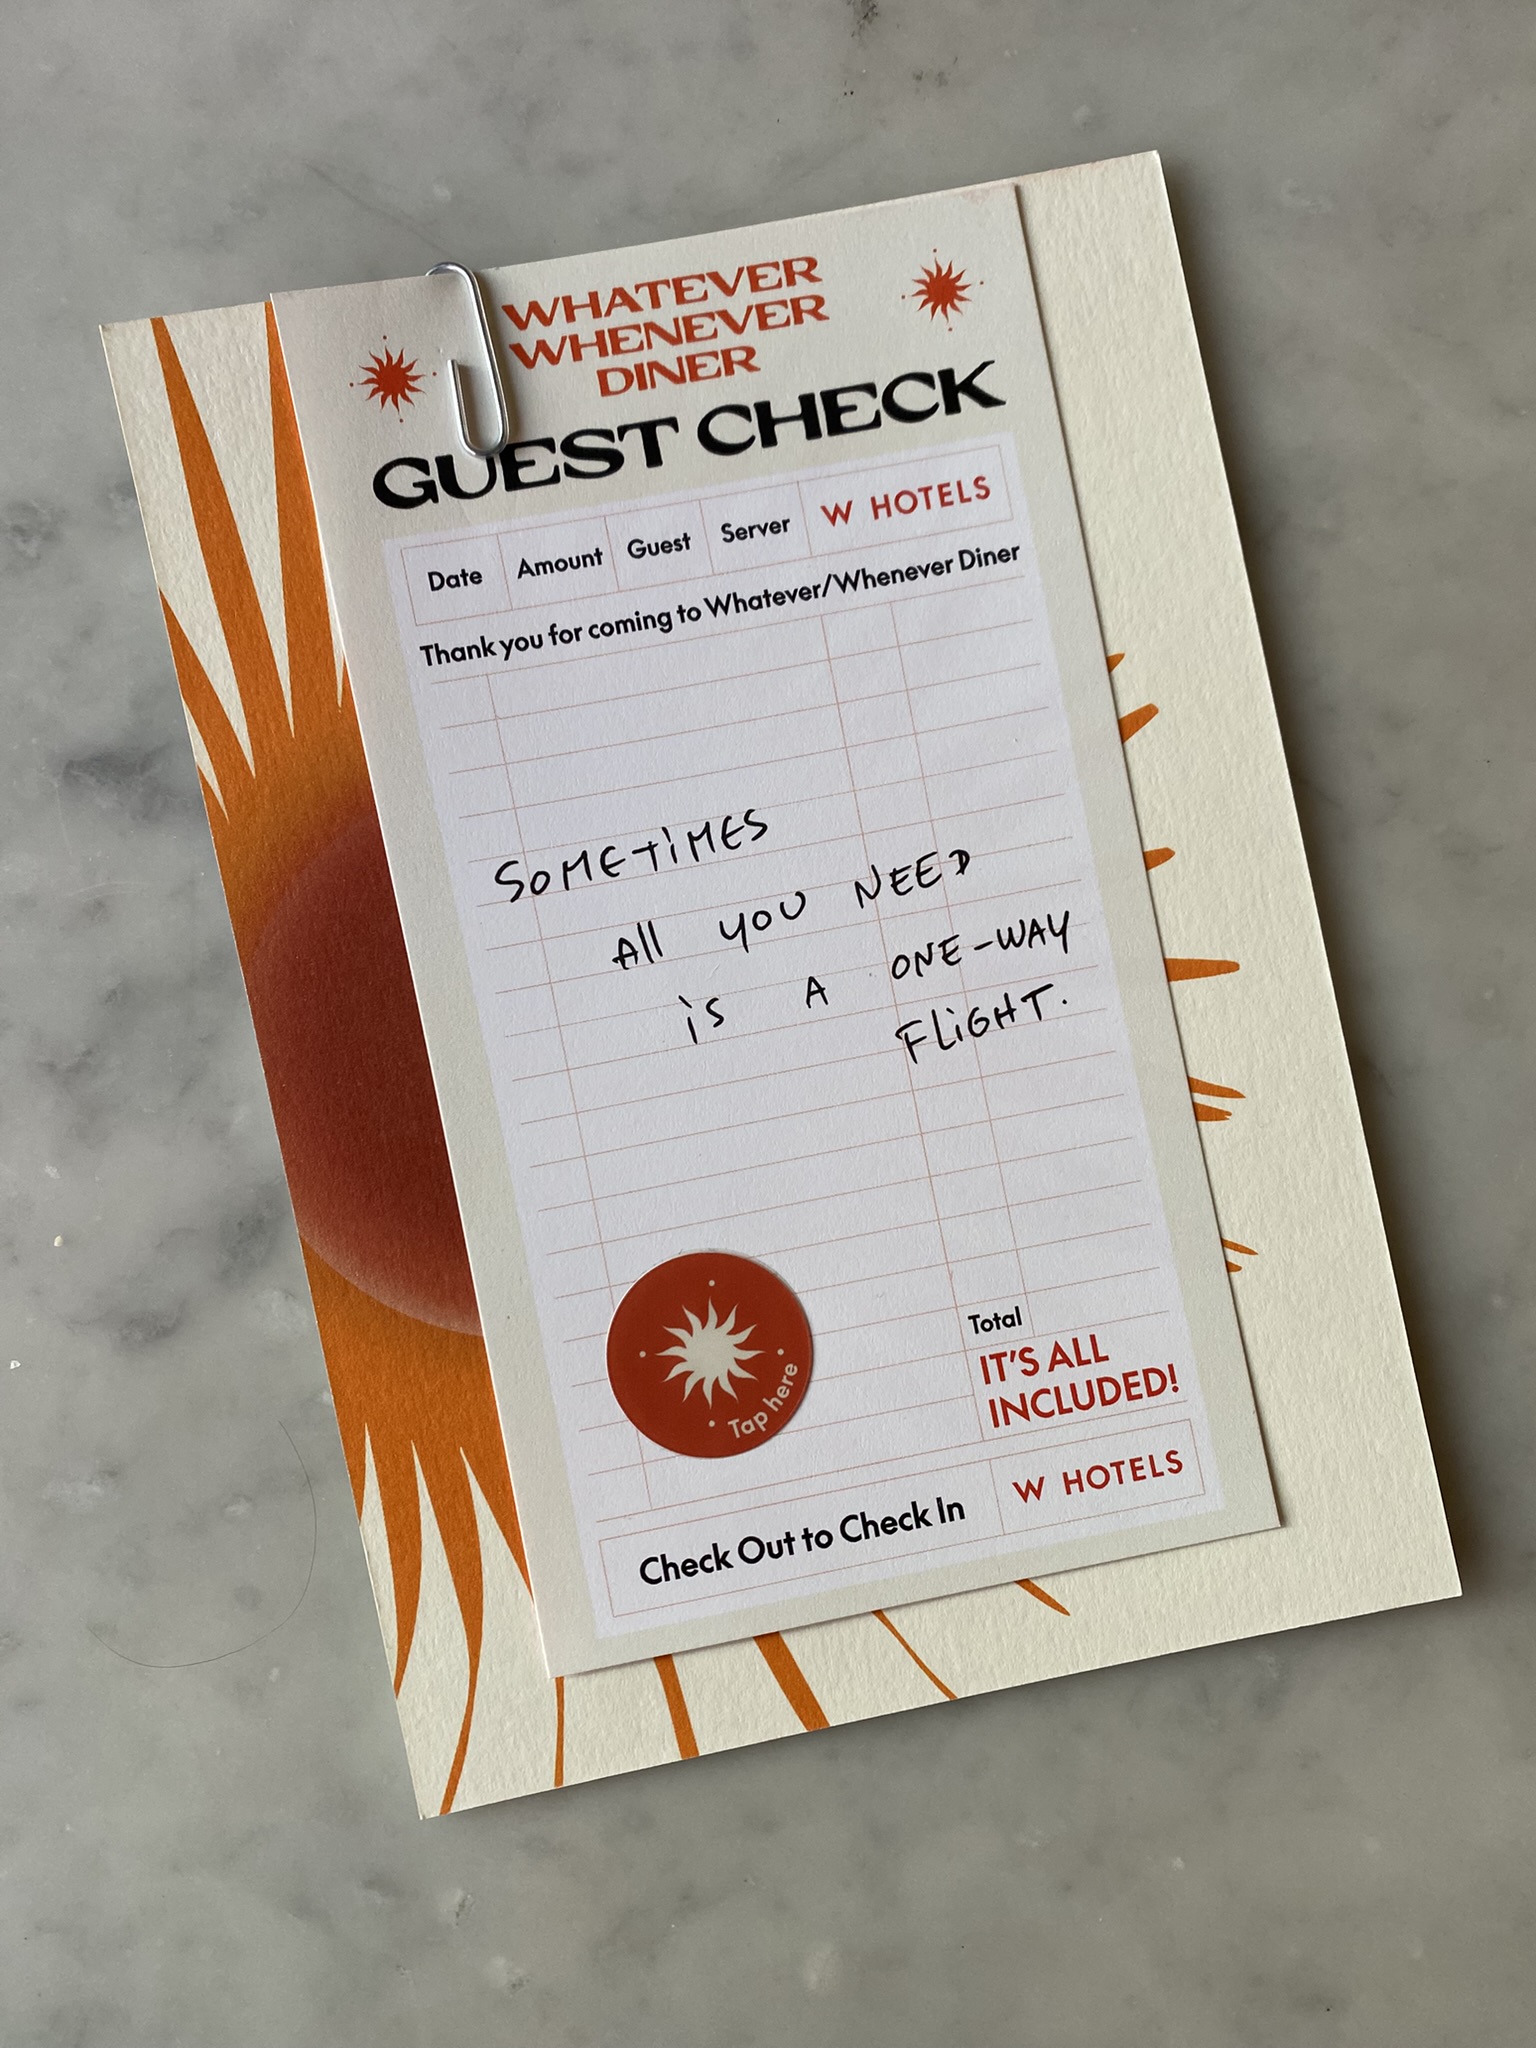 WHATEVER
WHENEVER
DINER
GUEST CHECK
Date Amount Guest Server W HOTELS
Thank you for coming to Whatever/Whenever Diner
SOMETiMES
All YOU NEED
iS A ONE-WAY
FLiGHT.
Tap here
Total
IT'S ALL
INCLUDED!
Check Out to Check In W HOTELS